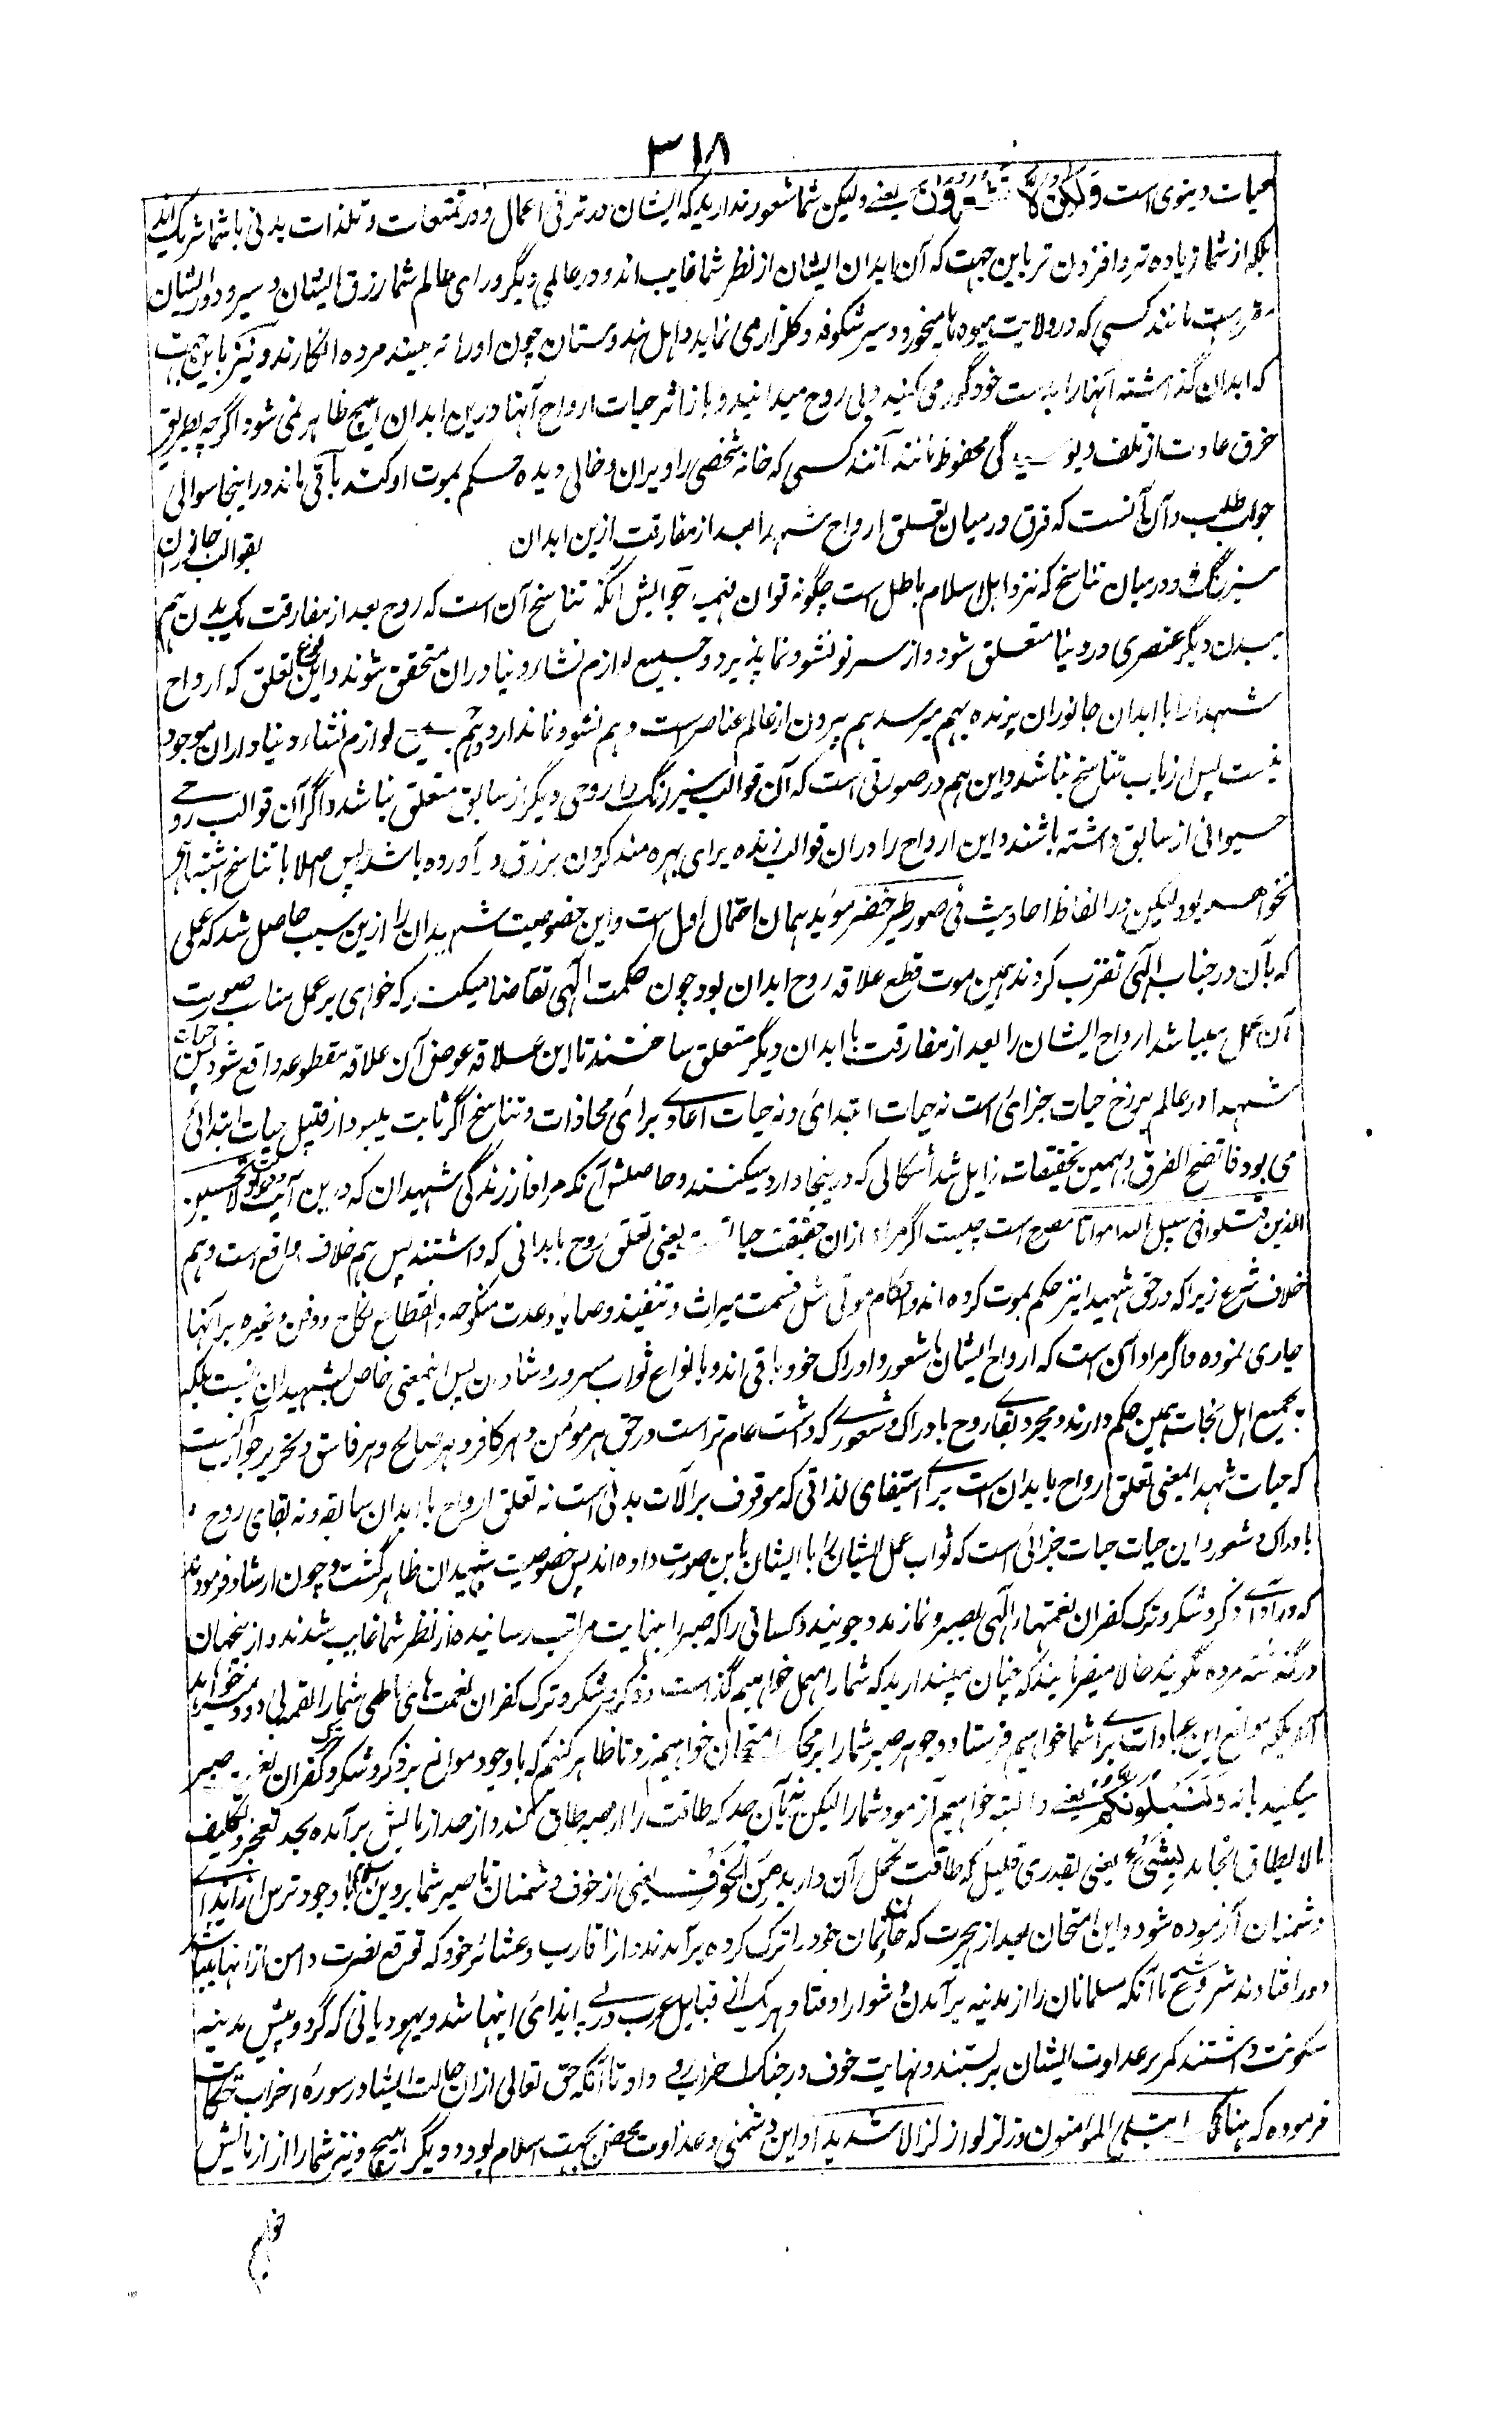 ۳۱۸
حیات دنیوی است وَلٰكِنْ لَا تَشْعُرُوْنَ یعنے ولیکن شما شعور ندارید که ایشان در ترقی اعمال و در تمتعات و تلذذات بدنی با شما شریک اند
بلکه از شما زیاده تر و افزون تر باین جهت که آن ابدان ایشان از نظر شما غایب اند و در عالمی دیگر ورای عالم شما رزق ایشان و سیر و دور ایشان
مقرر ست مانند کسی که در ولایت میوه ها میخورد و سیر شگوفه و گلزار می نماید و اهل هندوستان چون او را نه بینند مرده انگارند و نیز باین جهت
که ابدان گذاشته آنها را بدست خود گور می کنید و بی روح میدانید و باز اثر حیات ارواح آنها درین ابدان هیچ ظاهر نمی شود اگرچه بطریق
خرق عادت از تلف و بوسیدگی محفوظ مانند مانند کسی که خانه شخصی را ویران و خالی دیده حکم بموت او کند باقی ماند در اینجا سوالی
جواب طلب و آن آنست که فرق در میان تعلق ارواح شهدا بعد از مفارقت ازین ابدان بقوالب جانوران
سبز رنگ و در میان تناسخ که نزد اهل اسلام باطل است چگونه توان فهمید جوابش آنکه تناسخ آن است که روح بعد از مفارقت یک بدن هم
ببدن دیگر عنصری در دنیا متعلق شود و از سر نو نشو و نما پذیرد و جمیع لوازم نشاء دنیا دران متحقق شوند و این نوع تعلق که ارواح
شهدا را با ابدان جانوران پرنده بهم میرسد هم بیرون از عالم عناصر است و هم نشو و نما ندارد و هم جمیع لوازم نشاء دنیا دران موجود
نیست پس از باب تناسخ نباشد و این هم در صورتی است که آن قوالب سبز رنگ را روحی دیگر از سابق متعلق نباشد و اگر آن قوالب روحے
حیوانی از سابق داشته باشند و این ارواح را دران قوالب زنده برای بهره مند کردن برزق در آورده باشند پس اصلا با تناسخ اشتباهی
نخواهد بود لیکن در الفاظ احادیث فی صور طیر خضر مؤید همان احتمال اول است و این خصوصیت شهیدان را ازین سبب حاصل شد که عملی
که بآن در جناب الٰهی تقرب کردند همین موت قطع علاقه روح ابدان بود چون حکمت الٰهی تقاضا میکند که جزای هر عمل مناسب صورت
آن عمل میباشد ارواح ایشان را بعد از مفارقت با ابدان دیگر متعلق ساختند تا این علاقه عوض آن علاقه مقطوعه واقع شود پس حیات
شهدا در عالم برزخ حیات جزائی است نه حیات ابتدائی و نه حیات اعادے برائ مجازات و تناسخ اگر ثابت میبود از قبیل حیات ابتدائی
می بود فاتضح الفرق و بهمین تحقیقات زایل شد اشکالی که درینجا وارد میکنند و حاصلش آنکه مراد از زندگی شهیدان که درین آیت و در آیت ولا تحسبن
الذین قتلوا فی سبیل الله امواتا مصرح است چیست اگر مراد ازان حقیقت حیات است یعنی تعلق روح بابدانی که داشتند پس هم خلاف واقع است و هم
خلاف شرع زیرا که در حق شهدا نیز حکم بموت کرده اند و احکام موتی مثل قسمت میراث و تنفیذ وصایا و عدت منکوحه و انقطاع نکاح و دفن و غیره بر آنها
جاری نموده و اگر مراد آن است که ارواح ایشان با شعور و ادراک خود باقی اند و بانواع ثواب مسرور و شادان پس اینمعنی خاص بشهیدان نیست بلکه
جمیع اهل نجات همین حکم دارند و مجرد بقاے روح با ادراک و شعورے که داشت عام تر است در حق هر مؤمن و هر کافر و هر صالح و هر فاسق و تحریر جواب آنست
که حیات شهدا بمعنی تعلق ارواح بابدان است براے استیفای لذاتی که موقوف بر آلات بدنی است نه تعلق ارواح با ابدان سابقه و نه بقای روح
با ادراک و شعور و این حیات حیات جزائی است که ثواب عمل ایشان را با ایشان باین صورت داده اند پس خصوصیت شهیدان ظاهر گشت و چون ارشاد فرمودند
که در اداے ذکر و شکر و ترک کفران نعمتهاء الٰهی بصبر و نماز مدد جویند و کسانی را که صبر را بنهایت مراتب رسانیده از نظر شما غایب شدند و از یخجهان
درگذشته مرده نگوئید حالا میفرمایند که چنان مپندارید که شما را مهمل خواهیم گذاشت و ذکر و شکر و ترک کفران نعمت های باطنی شما را
این عبادات براے شما خواهیم فرستاد و جوهر صبر شما را بر محک امتحان خواهیم زد تا ظاهر کنیم که باوجود موانع بر ذکر و شکر و ترک کفران صبر
میکنید یا نه وَلَنَبْلُوَنَّكُمْ یعنے و البته خواهیم آزمود شما را لیکن نه بآن حد که طاقت را از صبر طاق کند و از حد آزمایش برآمده بحد تعجیز و تکلیف
مالا یطاق انجامد بِشَيْءٍ یعنی بقدری قلیل که طاقت تحمل آن دارید مِنَ الْخَوْفِ یعنی از خوف دشمنان تا صبر شما بر دین اسلام باوجود ترس از ایذاے
دشمنان آزموده شود و این امتحان بعد از هجرت که خانمان خود را ترک کرده برآمدند و از اقارب و عشائر خود که توقع نصرت و امن از آنها میباشد
دور افتادند شروع شد تا آنکه مسلمانان را از مدینه برآمدن دشوار افتاد و هر یک از قبایل عرب در پے ایذائ اینها شد و یهودیانی که گرد و پیش مدینه
سکونت داشتند کمر بر عداوت ایشان بر بستند و نهایت خوف در جنگ احزاب رو داد تا آنکه حق تعالی ازان حالت ایشان در سوره احزاب حکایت
فرموده که هنالک ابتلی المؤمنون و زلزلوا زلزالا شدیدا و این دشمنی و عداوت محض بجهت اسلام بود و دیگر هیچ و نیز شما را از آزمایش
خواهیم